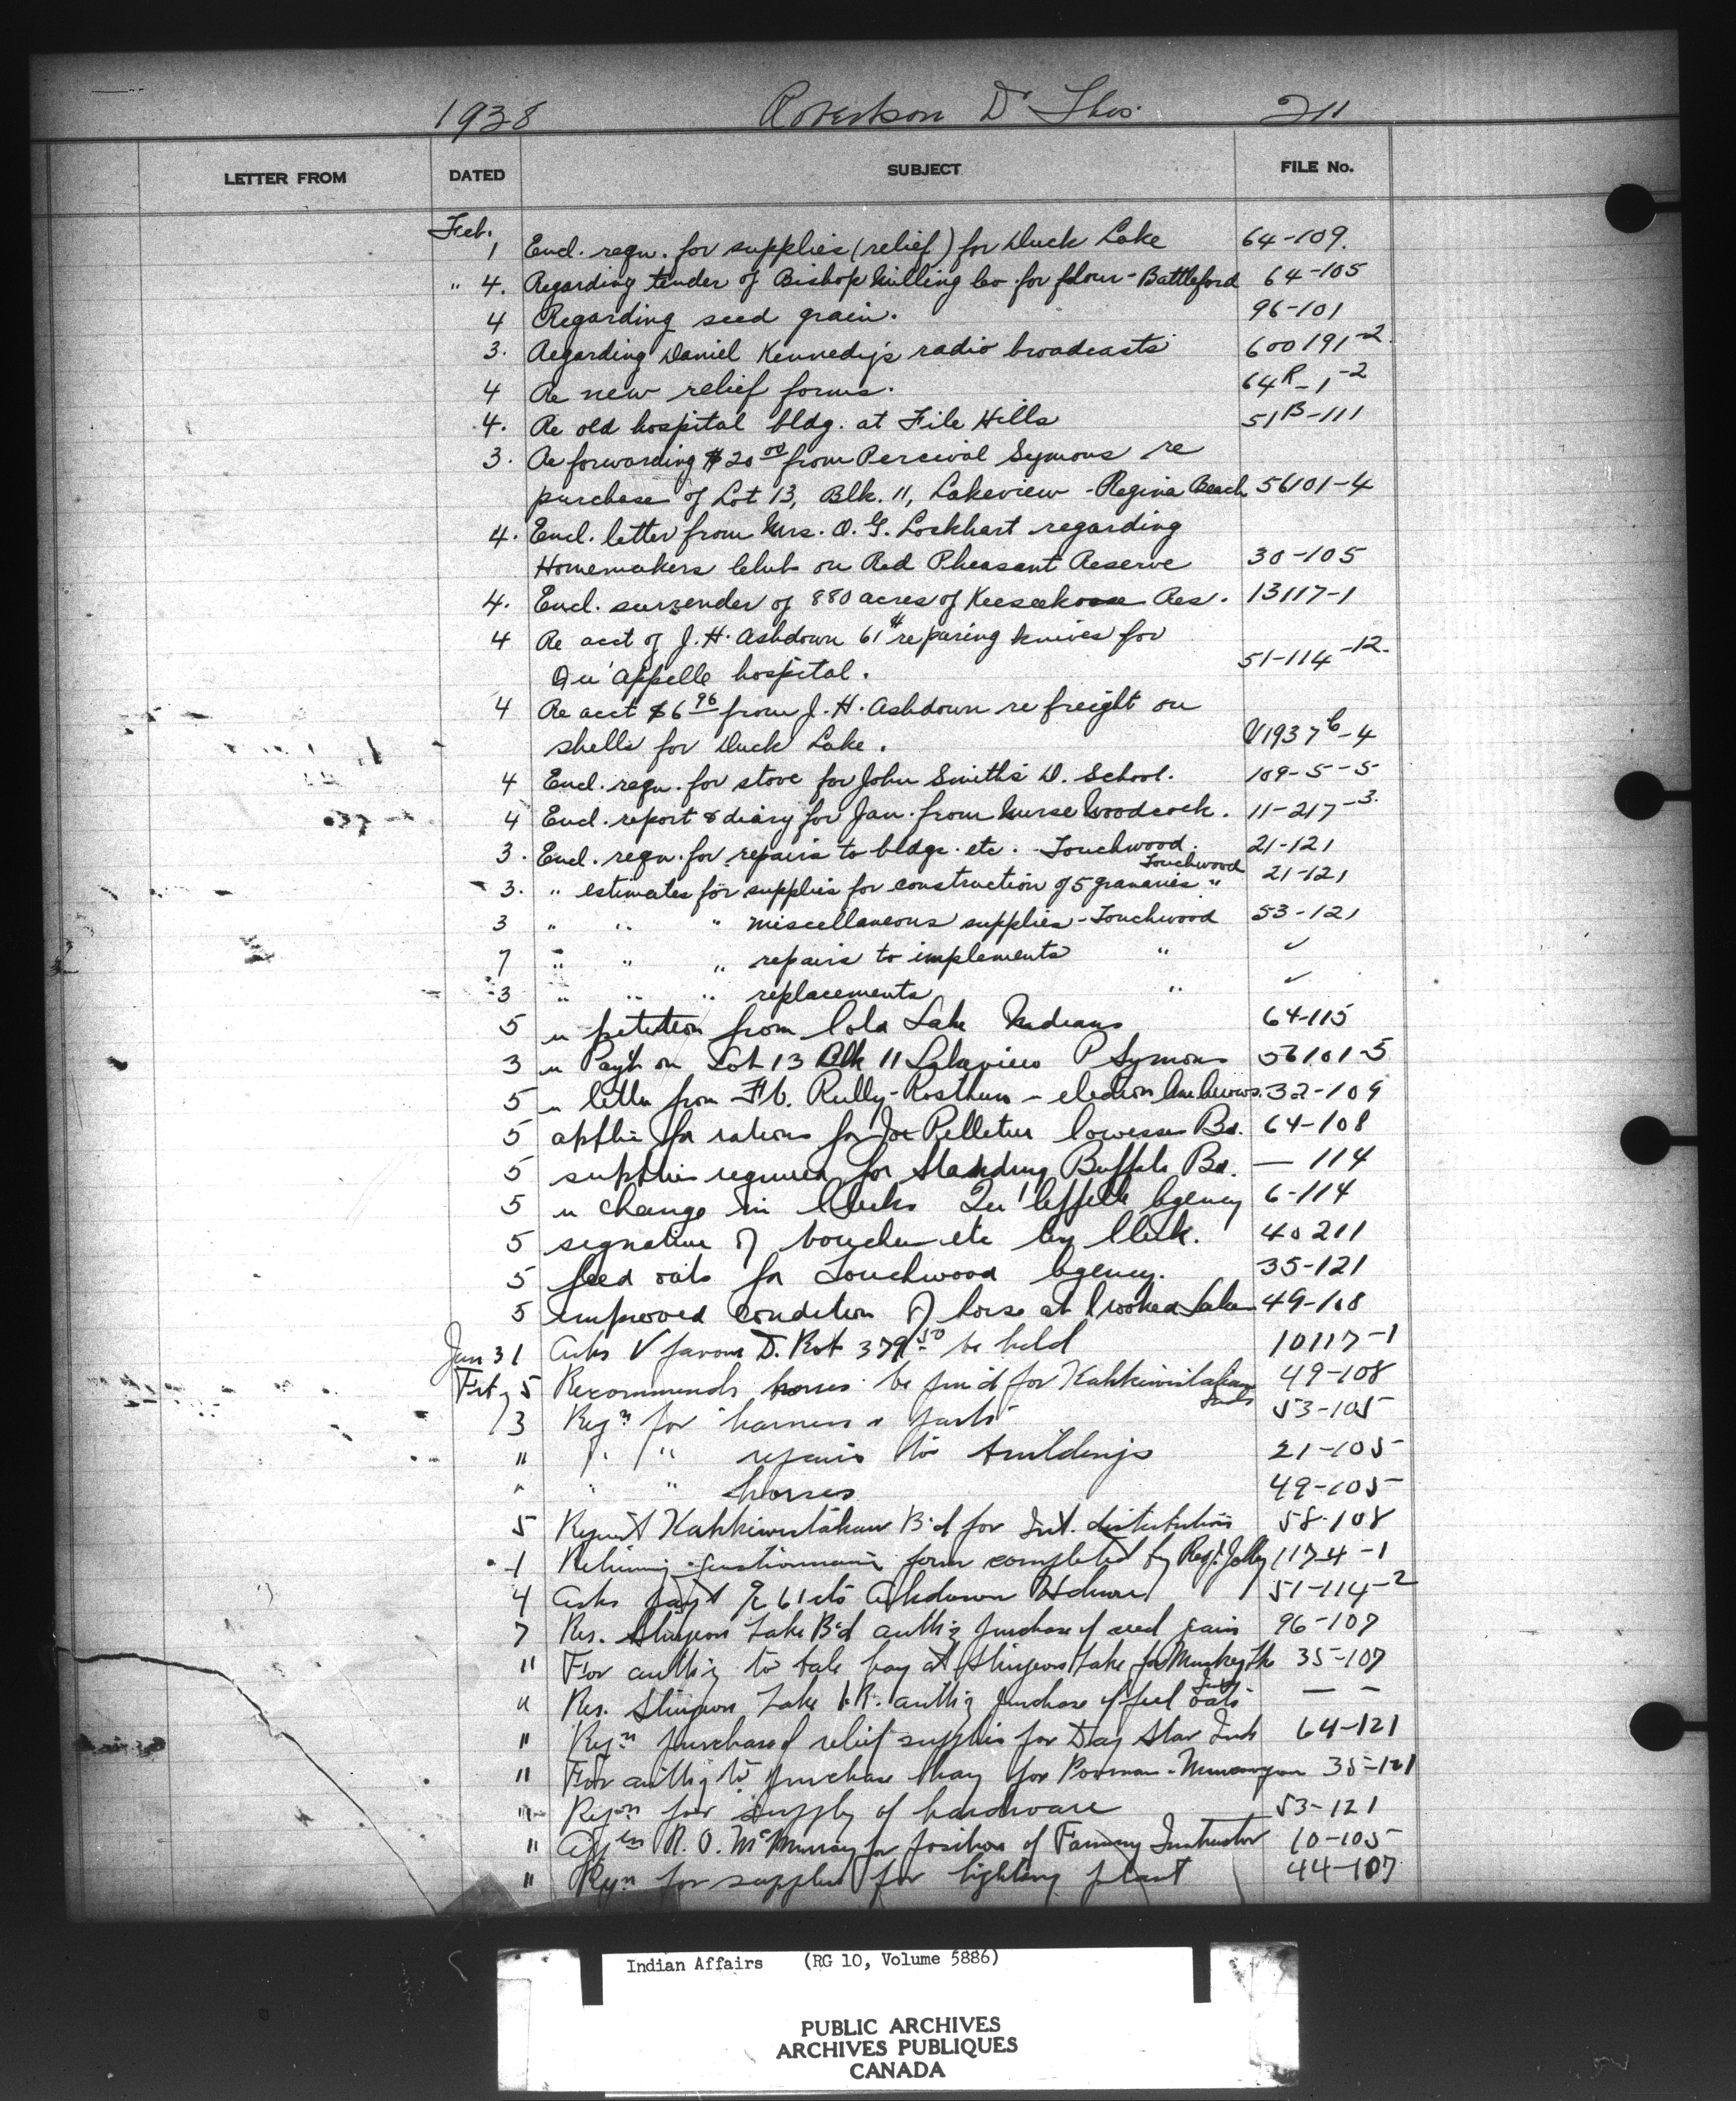 1938 Robertson Dr Thos. 211
LETTER FROM DATED SUBJECT FILE No.
Feb.
1 Encl. reqn. for supplies (relief) for Duck Lake 64-109.
" 4. Regarding tender of Bishop Milling Co. for flour - Battleford 64-105
4 Regarding seed grain. 96-101
3. Regarding Daniel Kennedy's radio broadcasts 600191-2.
4 Re new relief forms. 64R-1-2
4. Re old hospital bldg. at File Hills 51B-111
3. Re forwarding $20 00 from Percival Symons re
purchase of Lot 13, Blk. 11, Lakeview - Regina Beach 56101-4
4. Encl. letter from Mrs. O. G. Lockhart regarding
Homemakers Club on Red Pheasant Reserve 30-105
4. Encl. surrender of 880 acres of Keeseekoose Res. 13117-1
4 Re acct of J. H. Ashdown 61¢ reparing knives for
Qu'appelle hospital. 51-114-12.
4 Re acct $6 96 from J. H. Ashdown re freight on
shells for Duck Lake. V1937C-4
4 Encl. reqn. for stove for John Smith's D. School. 109-5-5
4 Encl. report & diary for Jan. from Nurse Woodcock. 11-217-3.
3. Encl. reqn. for repairs to bldgs. etc. - Touchwood. 21-121
Touchwood
3. " estimates for supplies for construction of 5 granaries " 21-121
3 " " " miscellaneous supplies - Touchwood 53-121
7 " " " repairs to implements " ✓
3 " " " replacements " ✓
5 " petition from Cold Lake Indians 64-115
3 " Payt on Lot 13 Blk 11 Lakeview P Symons 56101-5
5 " letter from Reilly - Rosthern - election 32-109
5 applic for rations for Joe Pelletier Cowesess Bd. 64-108
5 supplies required for Standing Buffalo Bd. — 114
5 " change in Clerks Qu'appelle Agency 6-114
5 signature of vouchers etc by Clerk. 40211
5 feed oats for Touchwood Agency. 35-121
5 improved condition of horse at Crooked Lake 49-108
Jan 31 Asks V favour D. Rob 379 50 be held 10117-1
Feby 5 Recommends horses be pur'd for Kahkewistahaw 49-108
Inds
3 Reqn for harness & parts 53-105
" " " repairs to buildings 21-105
" " " horses 49-105
5 Request Kahkewistahaw B'd for Int. distribution 58-108
1 Returning questionnaire form completed by Regt. Jolly 1174-1
4 Asks payt a/c 61 cts Ashdown Hdware 51-114-2
7 Res. Sturgeon Lake B'd authg purchase of seed grain 96-107
" For authy to take hay at Sturgeon Lake for 35-107
" Res. Sturgeon Lake I.R. authg purchase of feed oats — —
" Reqn purchase of relief supplies for Day Star Inds 64-121
" For authy to purchase hay for Poorman - 35-121
" Reqn for supply of hardware 53-121
" Appn R. O. McMurray for position of Farming Instructor 10-105
" Reqn for supplies for lighting plant 44-107
Indian Affairs (RG 10, Volume 5886)
PUBLIC ARCHIVES
ARCHIVES PUBLIQUES
CANADA